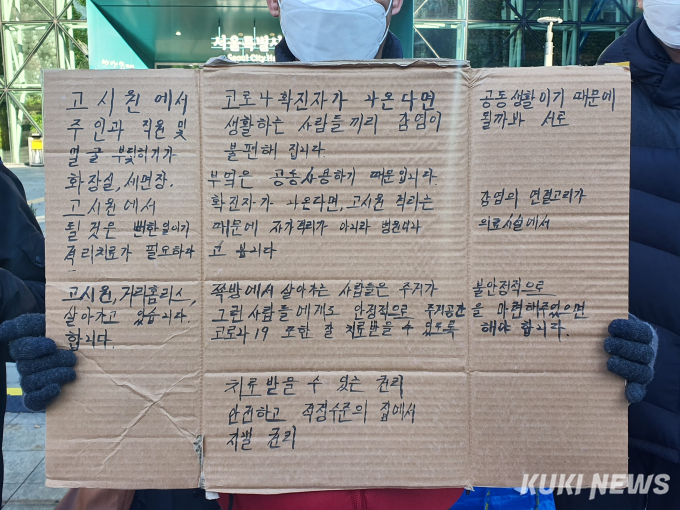 서울특별시
Seoul City
고시원에서 코로나확진자가 나온다면 공동생활이기 때문에
주인과 직원 및 생활하는 사람들끼리 감염이 될까봐 서로
얼굴 부딪히기가 불편해 집니다.
화장실, 세면장, 부엌은 공동사용하기 때문입니다.
고시원에서 확진자가 나온다면, 고시원 격리는 감염의 연결고리가
될것은 뻔한일이기 때문에 자가격리가 아니라 병원이나 의료시설에서
격리치료가 필요하다 고 봅니다
고시원, 거리홈리스, 쪽방에서 살아가는 사람들은 주거가 불안정적으로
살아가고 있습니다. 그런 사람들에게도 안정적으로 주거공간을 마련해주었으면
합니다. 코로나19 또한 잘 치료받을 수 있도록 해야 합니다.
치료받을 수 있는 권리
안전하고 적정수준의 집에서
지낼 권리
KUKI NEWS